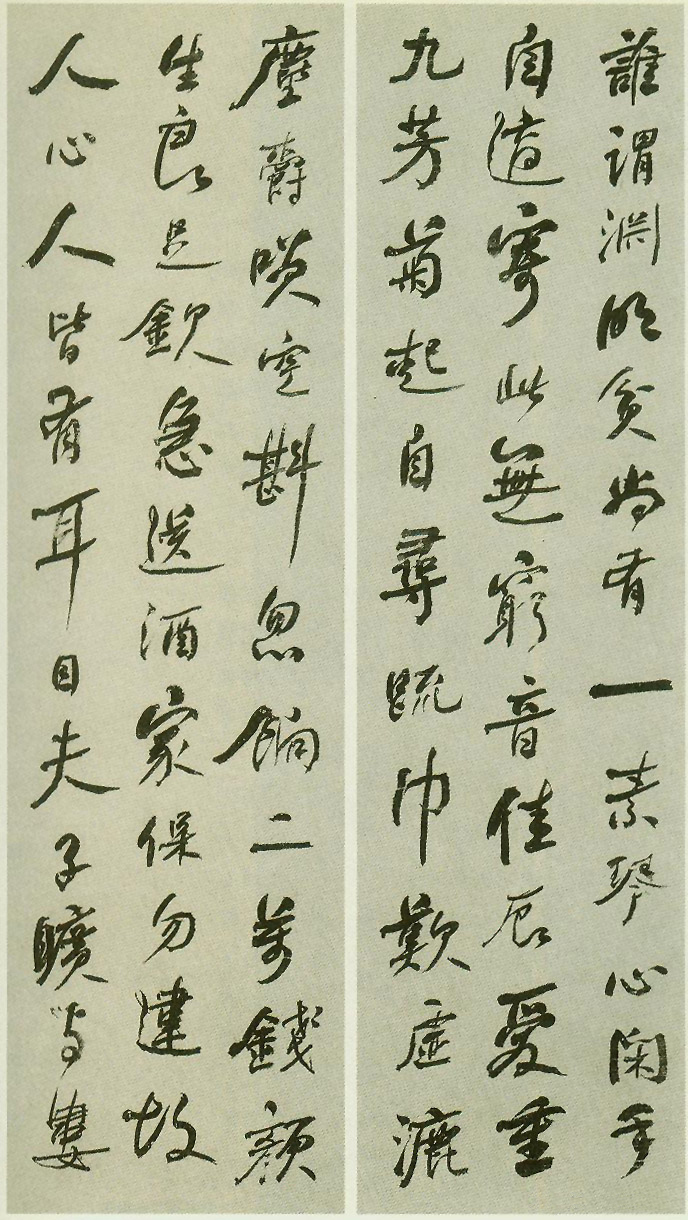 誰謂淵明貧尚有一素琴心閑手
自適寄此無窮音佳辰愛重
九芳菊起自尋疏巾歎虛漉
塵爵咲空斟忽餉二萬錢顏
生良足欽急送酒家保勿違故
人心人皆有耳目夫子曠與婁